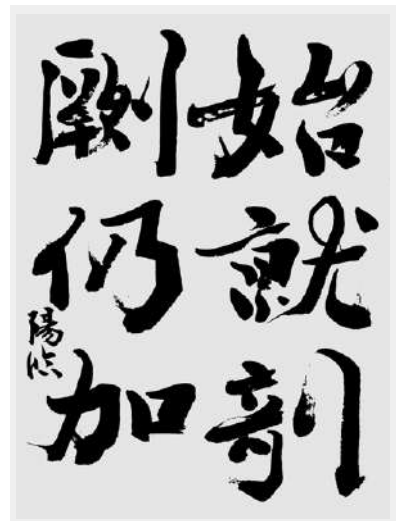 始就剞
劂仍加
陽臨